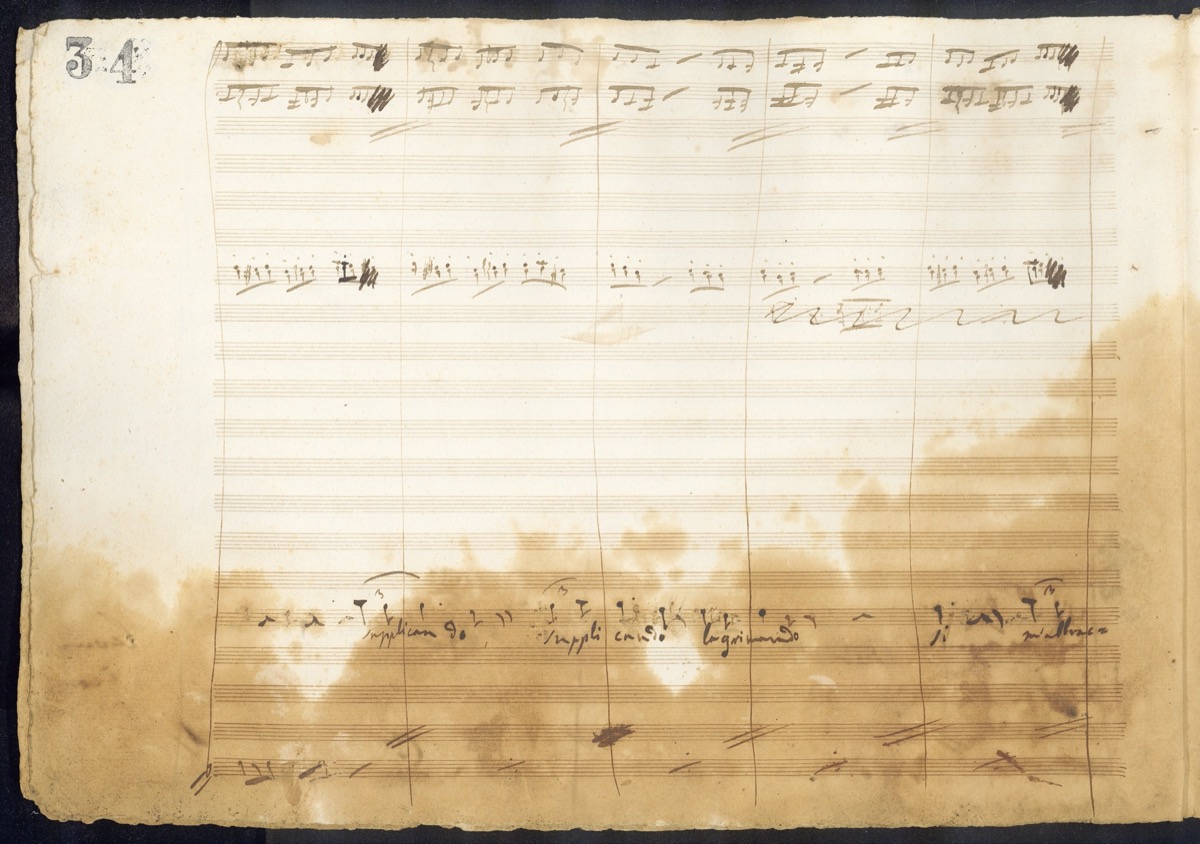 34
3 3 3
supplican do suppli cando lagrimando si m'abbrac=